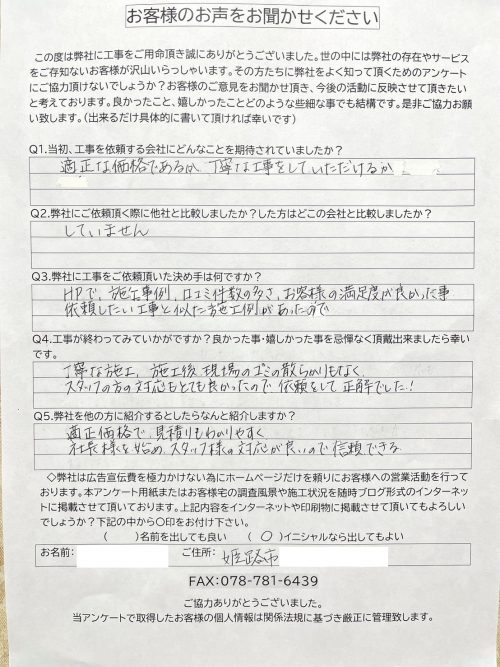 お客様のお声をお聞かせください
この度は弊社に工事をご用命頂き誠にありがとうございました。世の中には弊社の存在やサービス
をご存知ないお客様が沢山いらっしゃいます。その方たちに弊社をよく知って頂くためのアンケート
にご協力頂けないでしょうか？お客様のご意見をお聞かせ頂き、今後の活動に反映させて頂きたい
と考えております。良かったこと、嬉しかったことどのような些細な事でも結構です。是非ご協力お願
い致します。（出来るだけ具体的に書いて頂ければ幸いです）
Q1.当初、工事を依頼する会社にどんなことを期待されていましたか？
適正な価格であるか、丁寧な工事をしていただけるか
Q2.弊社にご依頼頂く際に他社と比較しましたか？した方はどこの会社と比較しましたか？
していません
Q3.弊社に工事をご依頼頂いた決め手は何ですか？
HPで、施工事例、口コミ件数の多さ、お客様の満足度が良かった事
依頼したい工事と似た施工例があったので
Q4.工事が終わってみていかがですか？良かった事・嬉しかった事を忌憚なく頂戴出来ましたら幸い
です。
丁寧な施工、施工後現場のゴミの散らかりもなく、
スタッフの方の対応もとても良かったので依頼をして正解でした！
Q5.弊社を他の方に紹介するとしたらなんと紹介しますか？
適正価格で、見積りもわかりやすく
社長様を始めスタッフ様の対応が良いので信頼できる
◇弊社は広告宣伝費を極力かけない為にホームページだけを頼りにお客様への営業活動を行って
おります。本アンケート用紙またはお客様宅の調査風景や施工状況を随時ブログ形式のインターネッ
トに掲載させて頂いております。上記内容をインターネットや印刷物に掲載させて頂いてもよろしい
でしょうか？下記の中から〇印をお付け下さい。
（　　）名前を出しても良い　（ 〇 ）イニシャルなら出してもよい
お名前：　ご住所：　姫路市
FAX:078-781-6439
ご協力ありがとうございました。
当アンケートで取得したお客様の個人情報は関係法規に基づき厳正に管理致します。